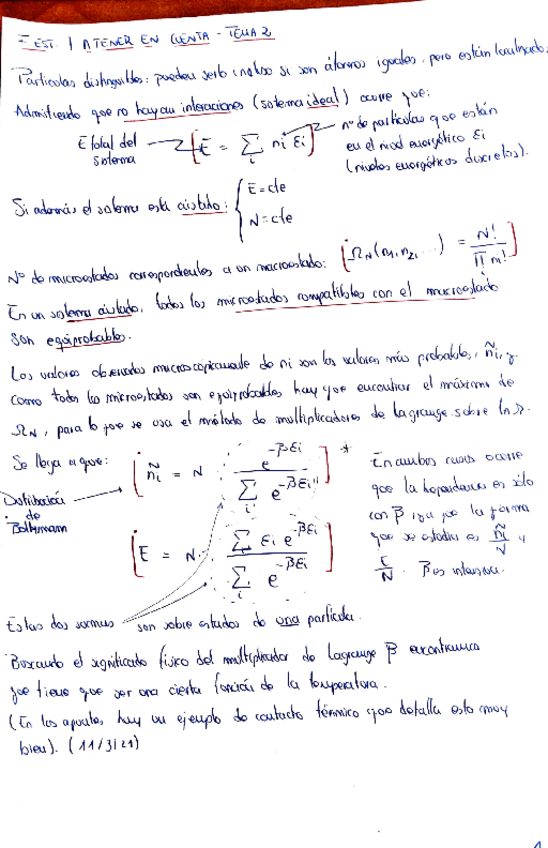 F. EST. | A TENER EN CUENTA - TEMA 2
Partículas distinguibles: pueden serlo incluso si son átomos iguales, pero están localizados.
Admitiendo que no hayan interacciones (sistema ideal) ocurre que:
E total del sistema → [E = Σ_i n_i ε_i] nº de partículas que están
en el nivel energético εi
(niveles energéticos discretos).
Si además el sistema está aislado: { E = cte
N = cte
Nº de microestados correspondientes a un macroestado: [Ω_N(n1, n2, ...) = N! / ∏ n_i!]
En un sistema aislado, todos los microestados compatibles con el macroestado
son equiprobables.
Los valores observados macroscópicamente de ni son los valores más probables, ñi, y
como todos los microestados son equiprobables, hay que encontrar el máximo de
Ω_N, para lo que se usa el método de multiplicadores de Lagrange sobre ln Ω.
Se llega a que: [ñ_i = N · e^{-βεi} / Σ_i e^{-βεi}] *
Distribución de Boltzmann
[E = N · Σ_i εi e^{-βεi} / Σ_i e^{-βεi}]
En ambos casos ocurre
que la dependencia es sólo
con β ya que la forma
que se estudia es ñi/N y
E/N. β es intensiva.
Estas dos sumas son sobre estados de una partícula.
Buscando el significado físico del multiplicador de Lagrange β encontramos
que tiene que ser una cierta función de la temperatura.
(En los apuntes, hay un ejemplo de contacto térmico que detalla esto muy
bien). (11/3/21)